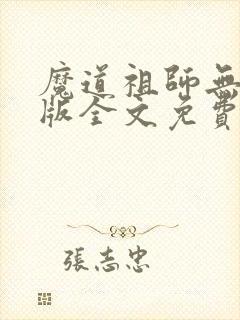 魔道祖師無
版全文免費
張志忠